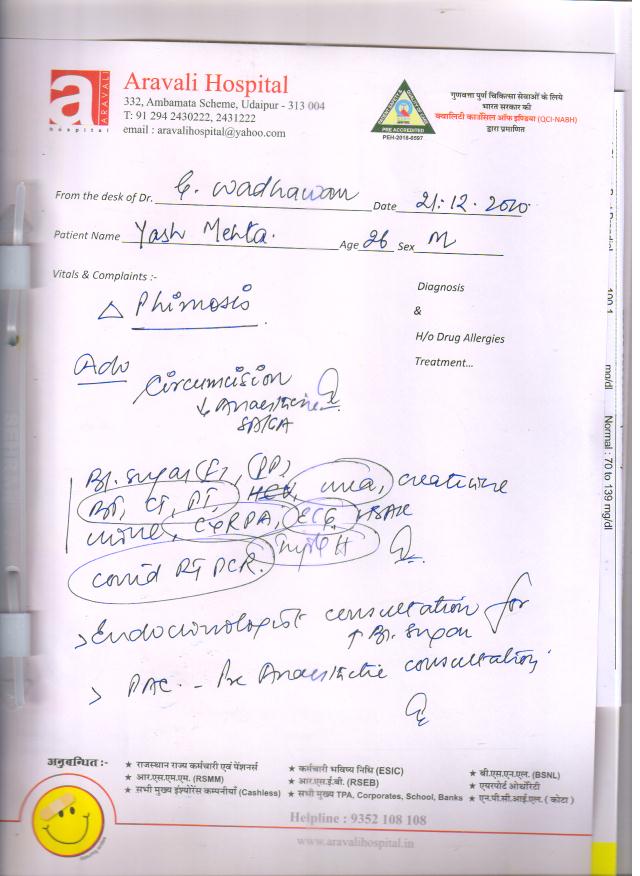 a
ARAVALI
hospital
Aravali Hospital
332, Ambamata Scheme, Udaipur - 313 004
T: 91 294 2430222, 2431222
email : aravalihospital@yahoo.com
PRE ACCREDITED
PEH-2018-0597
गुणवत्ता पूर्ण चिकित्सा सेवाओं के लिये
भारत सरकार की
क्वालिटी काउंसिल ऑफ इण्डिया (QCI-NABH)
द्वारा प्रमाणित
From the desk of Dr. G. Wadhawan Date 21.12.2020
Patient Name Yash Mehta. Age 26 Sex M
Vitals & Complaints :-
Diagnosis
&
H/o Drug Allergies
Treatment...
△ Phimosis
Adv
Circumcision
↓ Anaesthesia
SA/GA
Bl. sugar (F), (PP),
BT, CT, PT, urea, creatinine
urine, CXRPA, ECG,
covid RT PCR.
> Endocrinologist consultation for
↑ Bl. sugar
> PAC - Pre Anaesthetic consultation
mg/dl
Normal : 70 to 139 mg/dl
अनुबन्धित :-
★ राजस्थान राज्य कर्मचारी एवं पेंशनर्स
★ आर.एस.एम.एम. (RSMM)
★ सभी मुख्य इंश्योरेंस कम्पनीयाँ (Cashless)
★ कर्मचारी भविष्य निधि (ESIC)
★ आर.एस.ई.बी. (RSEB)
★ सभी मुख्य TPA, Corporates, School, Banks
★ बी.एस.एन.एल. (BSNL)
★ एयरपोर्ट ओथॉरिटी
★ एन.पी.सी.आई.एल. ( कोटा )
Helpline : 9352 108 108
www.aravalihospital.in